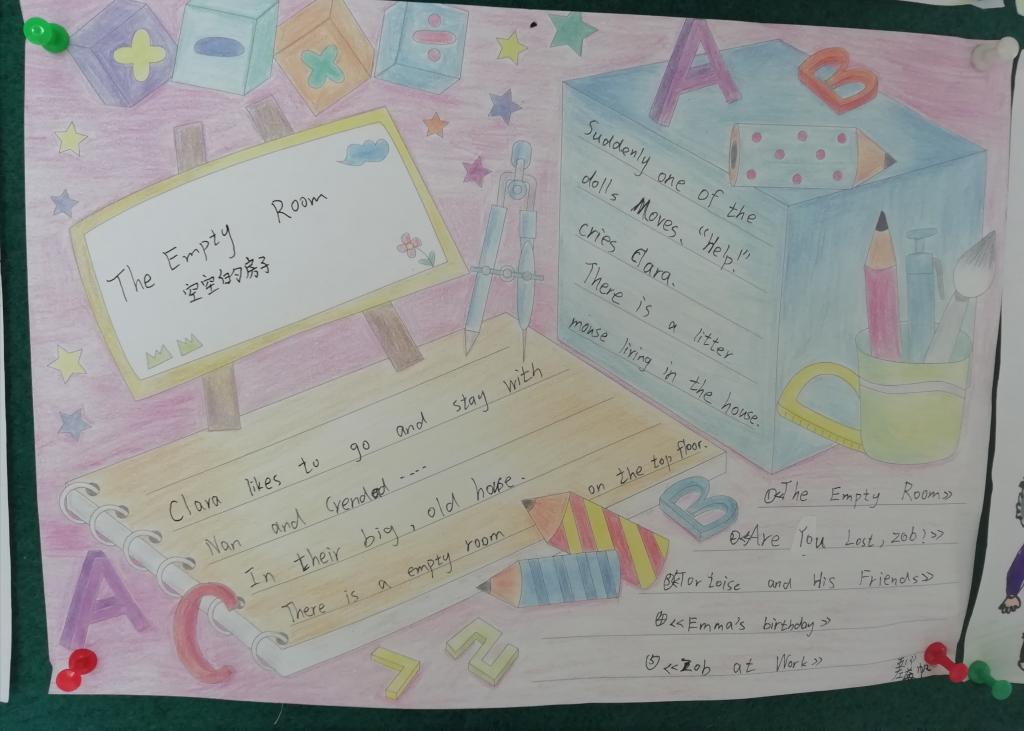 The Empty Room
空空的房子
Suddenly one of the
dolls Moves. "Help!"
cries Clara.
There is a litter
mouse living in the house.
Clara likes to go and stay with
Nan and Grended ...
In their big, old house.
There is a empty room on the top floor.
①《The Empty Room》
②《Are You Lost, Zob?》
③《Tortoise and His Friends》
④《Emma's birthday》
⑤《Zob at Work》
A
B
A
C
B
7
2